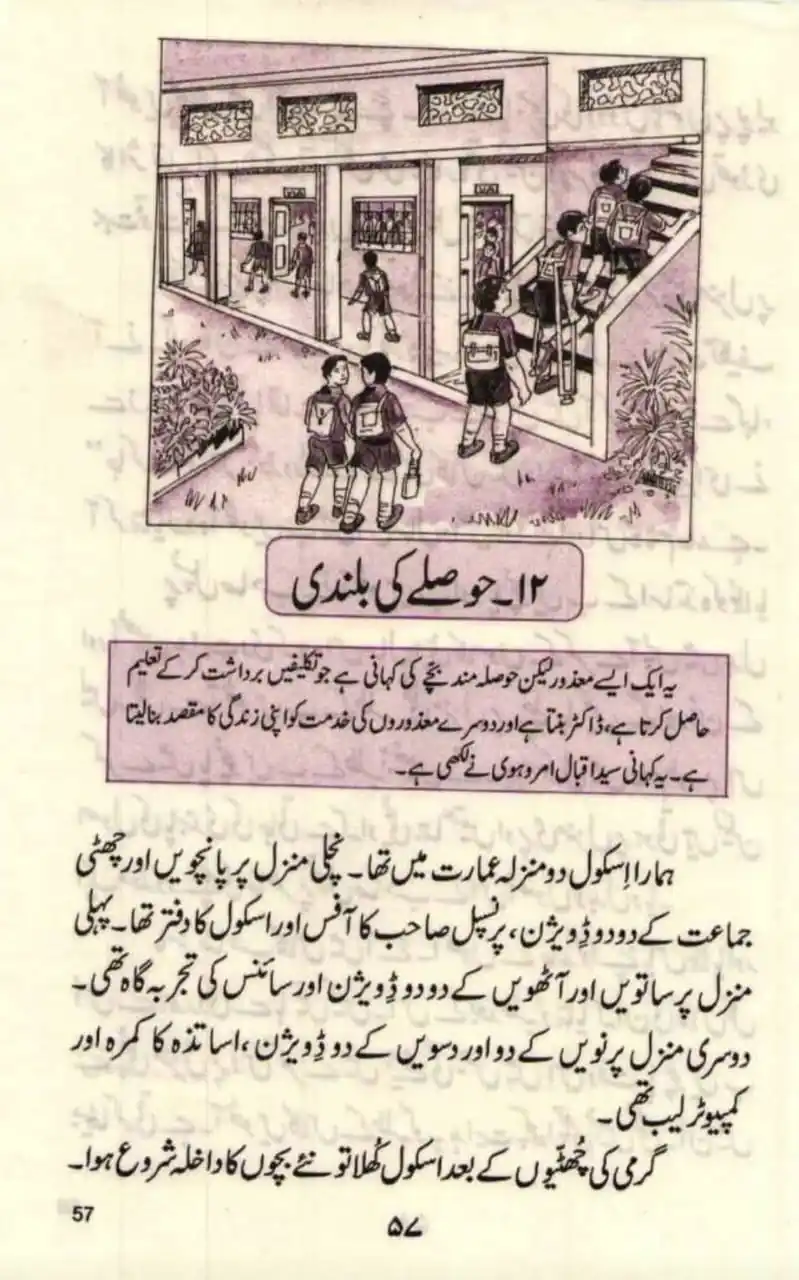 ۱۲۔ حوصلے کی بلندی
یہ ایک ایسے معذور لیکن حوصلہ مند بچّے کی کہانی ہے جو تکلیفیں برداشت کر کے تعلیم
حاصل کرتا ہے، ڈاکٹر بنتا ہے اور دوسرے معذوروں کی خدمت کو اپنی زندگی کا مقصد بنا لیتا
ہے۔ یہ کہانی سید اقبال امروہوی نے لکھی ہے۔
ہمارا اِسکول دو منزلہ عمارت میں تھا۔ نچلی منزل پر پانچویں اور چھٹی
جماعت کے دو دو ڈِویژن، پرنسپل صاحب کا آفس اور اسکول کا دفتر تھا۔ پہلی
منزل پر ساتویں اور آٹھویں کے دو دو ڈِویژن اور سائنس کی تجربہ گاہ تھی۔
دوسری منزل پر نویں کے دو اور دسویں کے دو ڈِویژن، اساتذہ کا کمرہ اور
کمپیوٹر لیب تھی۔
گرمی کی چُھٹّیوں کے بعد اسکول کُھلا تو نئے بچوں کا داخلہ شروع ہوا۔
57
۵۷